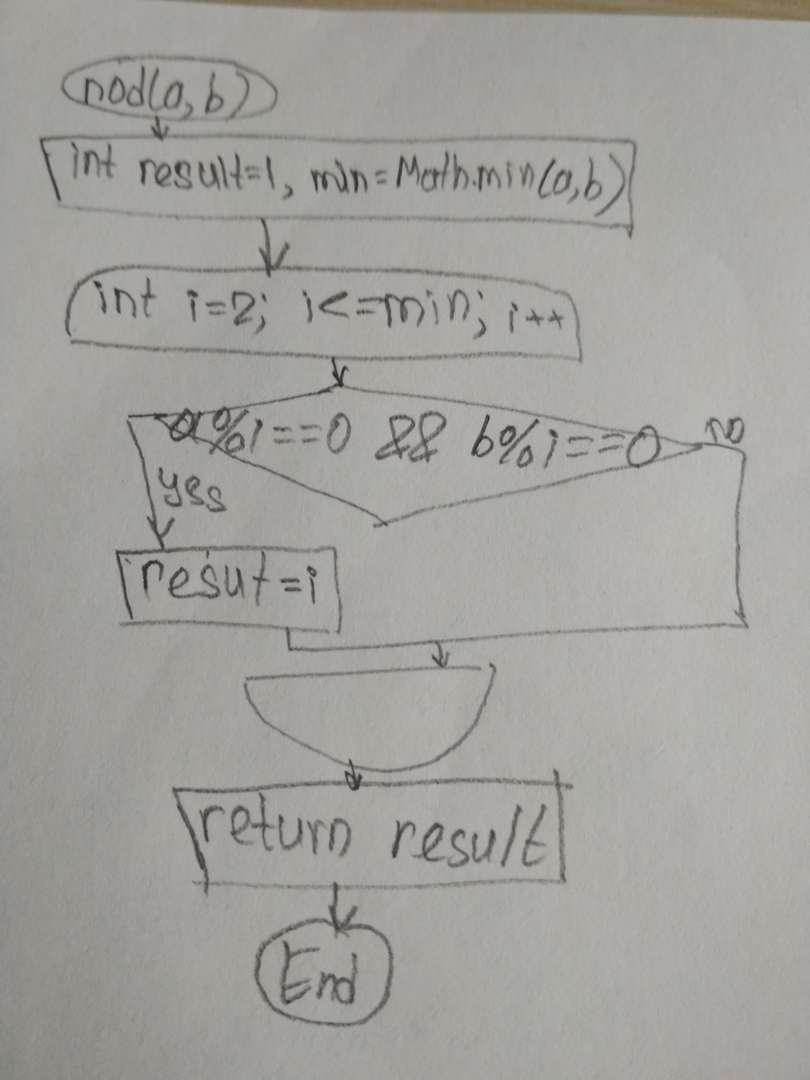 nod(a, b)
int result=1, min=Math.min(a,b)
int i=2; i<=min; i++
a%i==0 && b%i==0
no
yes
resut=i
return result
End